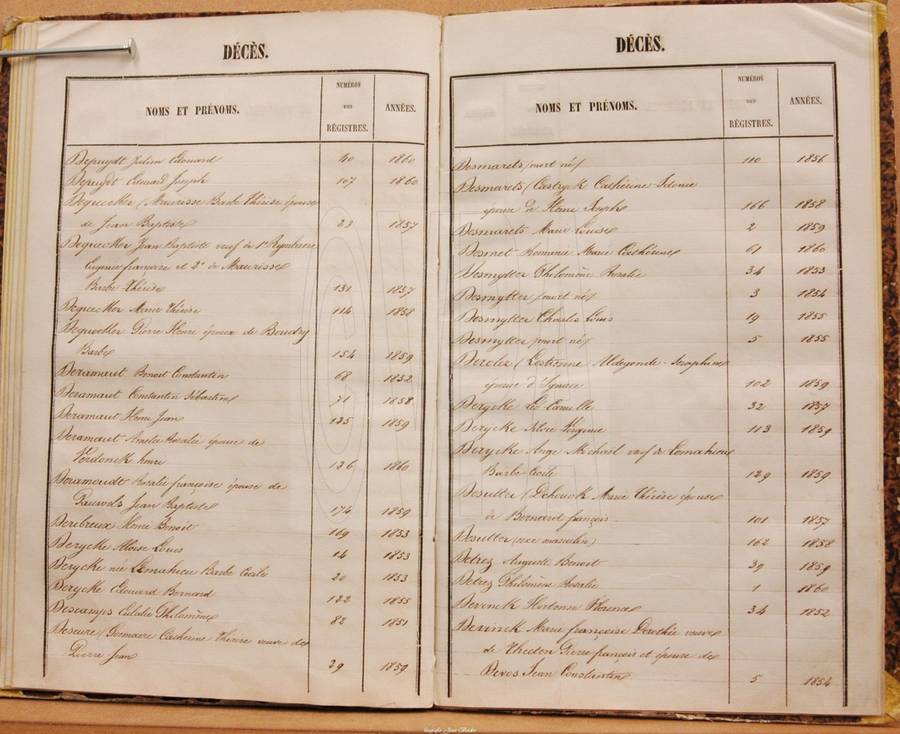 DÉCÈS.
NOMS ET PRÉNOMS.
NUMÉROS DES RÉGISTRES.
ANNÉES.
Depuydt Julien Edouard 40 1860
Depuydt Edouard Joseph 107 1860
Dequecker (Maurisse Barbe Thérèse épouse
de Jean Baptiste 23 1857
Dequecker Jean Baptiste veuf de 1° Ryckewaert
Eugénie françoise et 2° de Maurisse
Barbe Thérèse 131 1857
Dequecker Marie Thérèse 114 1858
Dequecker Pierre Henri époux de Boudry
Barbe 154 1859
Deramaut Benoit Constantin 68 1852
Deramaut Constantin Sébastien 71 1858
Deramaut Henri Jean 135 1859
Deramaut Amélie Rosalie épouse de
Verdonck henri 136 1860
Deramoudt Rosalie françoise épouse de
Pauwels Jean Baptiste 174 1859
Derebreux Henri Benoit 169 1853
Derycke Aloïse Louis 14 1853
Derycke née Lemahieu Barbe Cécile 20 1853
Derycke Edouard Bernard 122 1855
Descamps Eulalie Philomène 82 1851
Catherine Thérèse veuve de
Pierre Jean 29 1859
DÉCÈS.
NOMS ET PRÉNOMS.
NUMÉROS DES RÉGISTRES.
ANNÉES.
Desmarets (mort né) 110 1856
Desmarets (Castryck Cathérine Sidonie
épouse de Henri Joseph 166 1858
Desmarets Marie Louise 2 1859
Desmet Hommez Marie Cathérine 61 1860
Desmytter Philomène Rosalie 34 1853
Desmytter (mort né) 3 1854
Desmytter Charles Louis 19 1855
Desmytter (mort né) 5 1855
Aldegonde Séraphine
épouse d'Ignace 102 1859
Derycke Camille 32 1857
Derycke Virginie 113 1859
Derycke Ange Michaël veuf de Lemahieu
Barbe Cécile 129 1859
Desutter (Dehouck Marie Thérèse épouse
à Bernard françois 101 1857
Desutter (sexe masculin) 162 1858
Detrez Auguste Benoit 39 1859
Detrez Philomène Rosalie 1 1860
Hortense Florence 34 1852
Marie françoise Dorothée veuve
de Pierre françois et épouse de
Devos Jean Constantin 5 1854